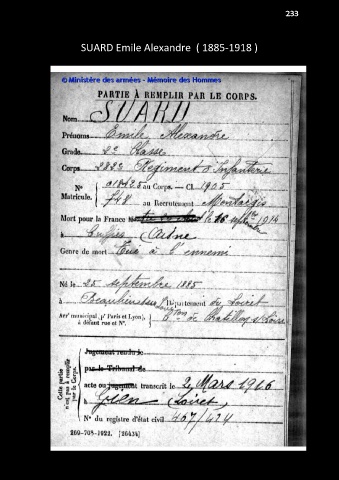 233
SUARD Emile Alexandre ( 1885-1918 )
© Ministère des armées - Mémoire des Hommes
PARTIE À REMPLIR PAR LE CORPS.
Nom SUARD
Prénoms Emile Alexandre
Grade 2e Classe
Corps 282e Régiment d'Infanterie
N° Matricule. au Corps. — Cl. 1905
748 au Recrutement Montargis
Mort pour la France le 16 septbre 1914
à Cuffies Aisne
Genre de mort Tué à l'ennemi
Né le 25 septembre 1885
à Département du Loiret
Arrt municipal (pr Paris et Lyon), à défaut rue et N°. de Chatillon s/ Loire
Cette partie n'est pas à remplir par le Corps.
Jugement rendu le
par le Tribunal de
acte ou jugement transcrit le 2 Mars 1916
à Gien Loiret
N° du registre d'état civil 467/424
269-708-1922. [26434]